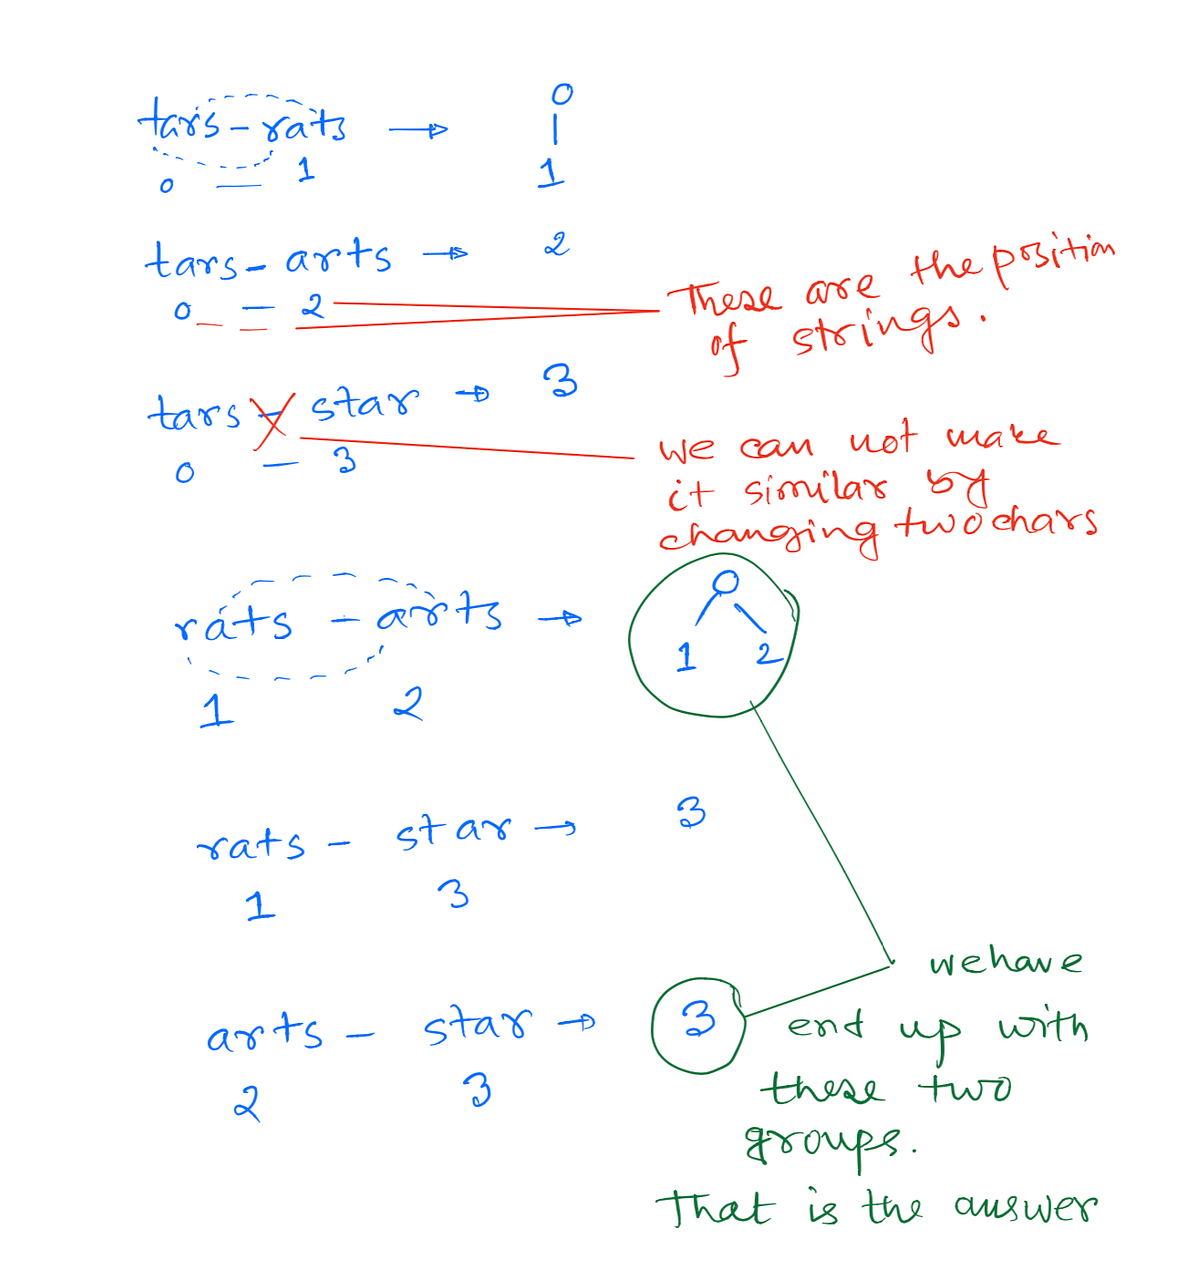 tars - rats → 0
1
0 — 1
tars - arts → 2
0 — 2
These are the position
of strings.
tars - star → 3
0 — 3
we can not make
it similar by
changing two chars
rats - arts → 0
1 2
1 2
rats - star → 3
1 3
arts - star → 3
2 3
we have
end up with
these two
groups.
That is the answer